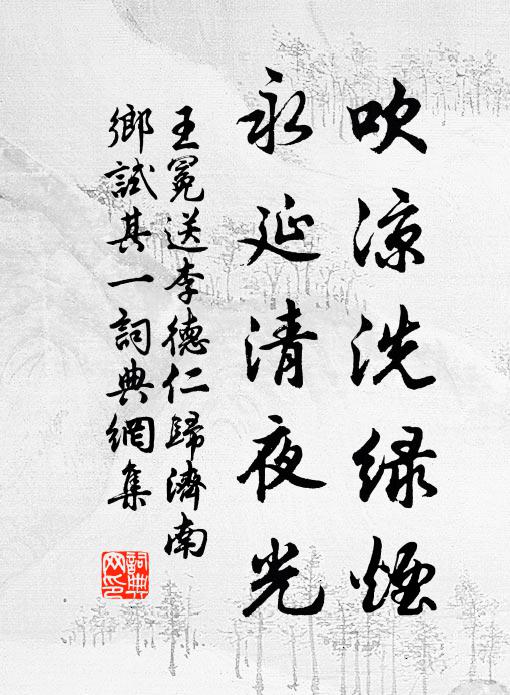 吹涼洗綠煙
永延清夜光
王冕送李德仁歸濟南
鄉試其一詞典網集
詞典網印